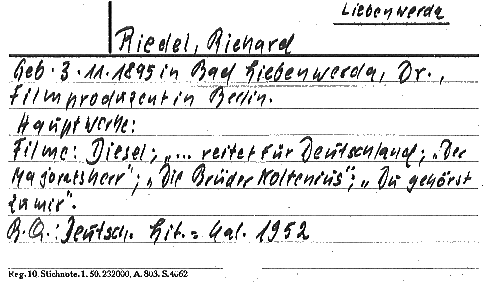 Liebenwerda
Riedel, Richard
Geb. 3.11.1895 in Bad Liebenwerda, Dr.,
Filmproduzent in Berlin.
Hauptwerke:
Filme: Diesel; „... reitet für Deutschland; „Der
Majoratsherr"; „Die Brüder Noltenius"; „Du gehörst
zu mir".
B.Q.: Deutsch. Lit.=Kal. 1952
Reg. 10. Stichnote. 1. 50. 232000, A. 803. S. 4062